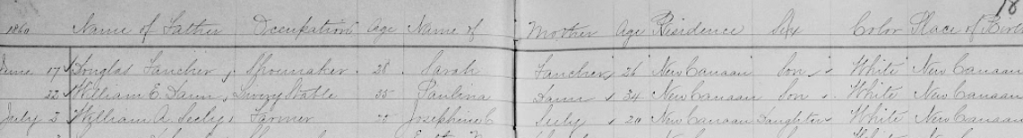 18
1860 Name of Father Occupation Age Name of Mother Age Residence Sex Color Place of Birth
June 17 Douglas Fancher, Shoemaker. 28. Sarah Fancher 26 New Canaan Son White New Canaan
22 William E. Dann, Livery Stable 35 Paulina Dann 34 New Canaan Son White New Canaan
July 2 William A Seely Farmer Josephine C Seely 20 New Canaan Daughter White New Canaan